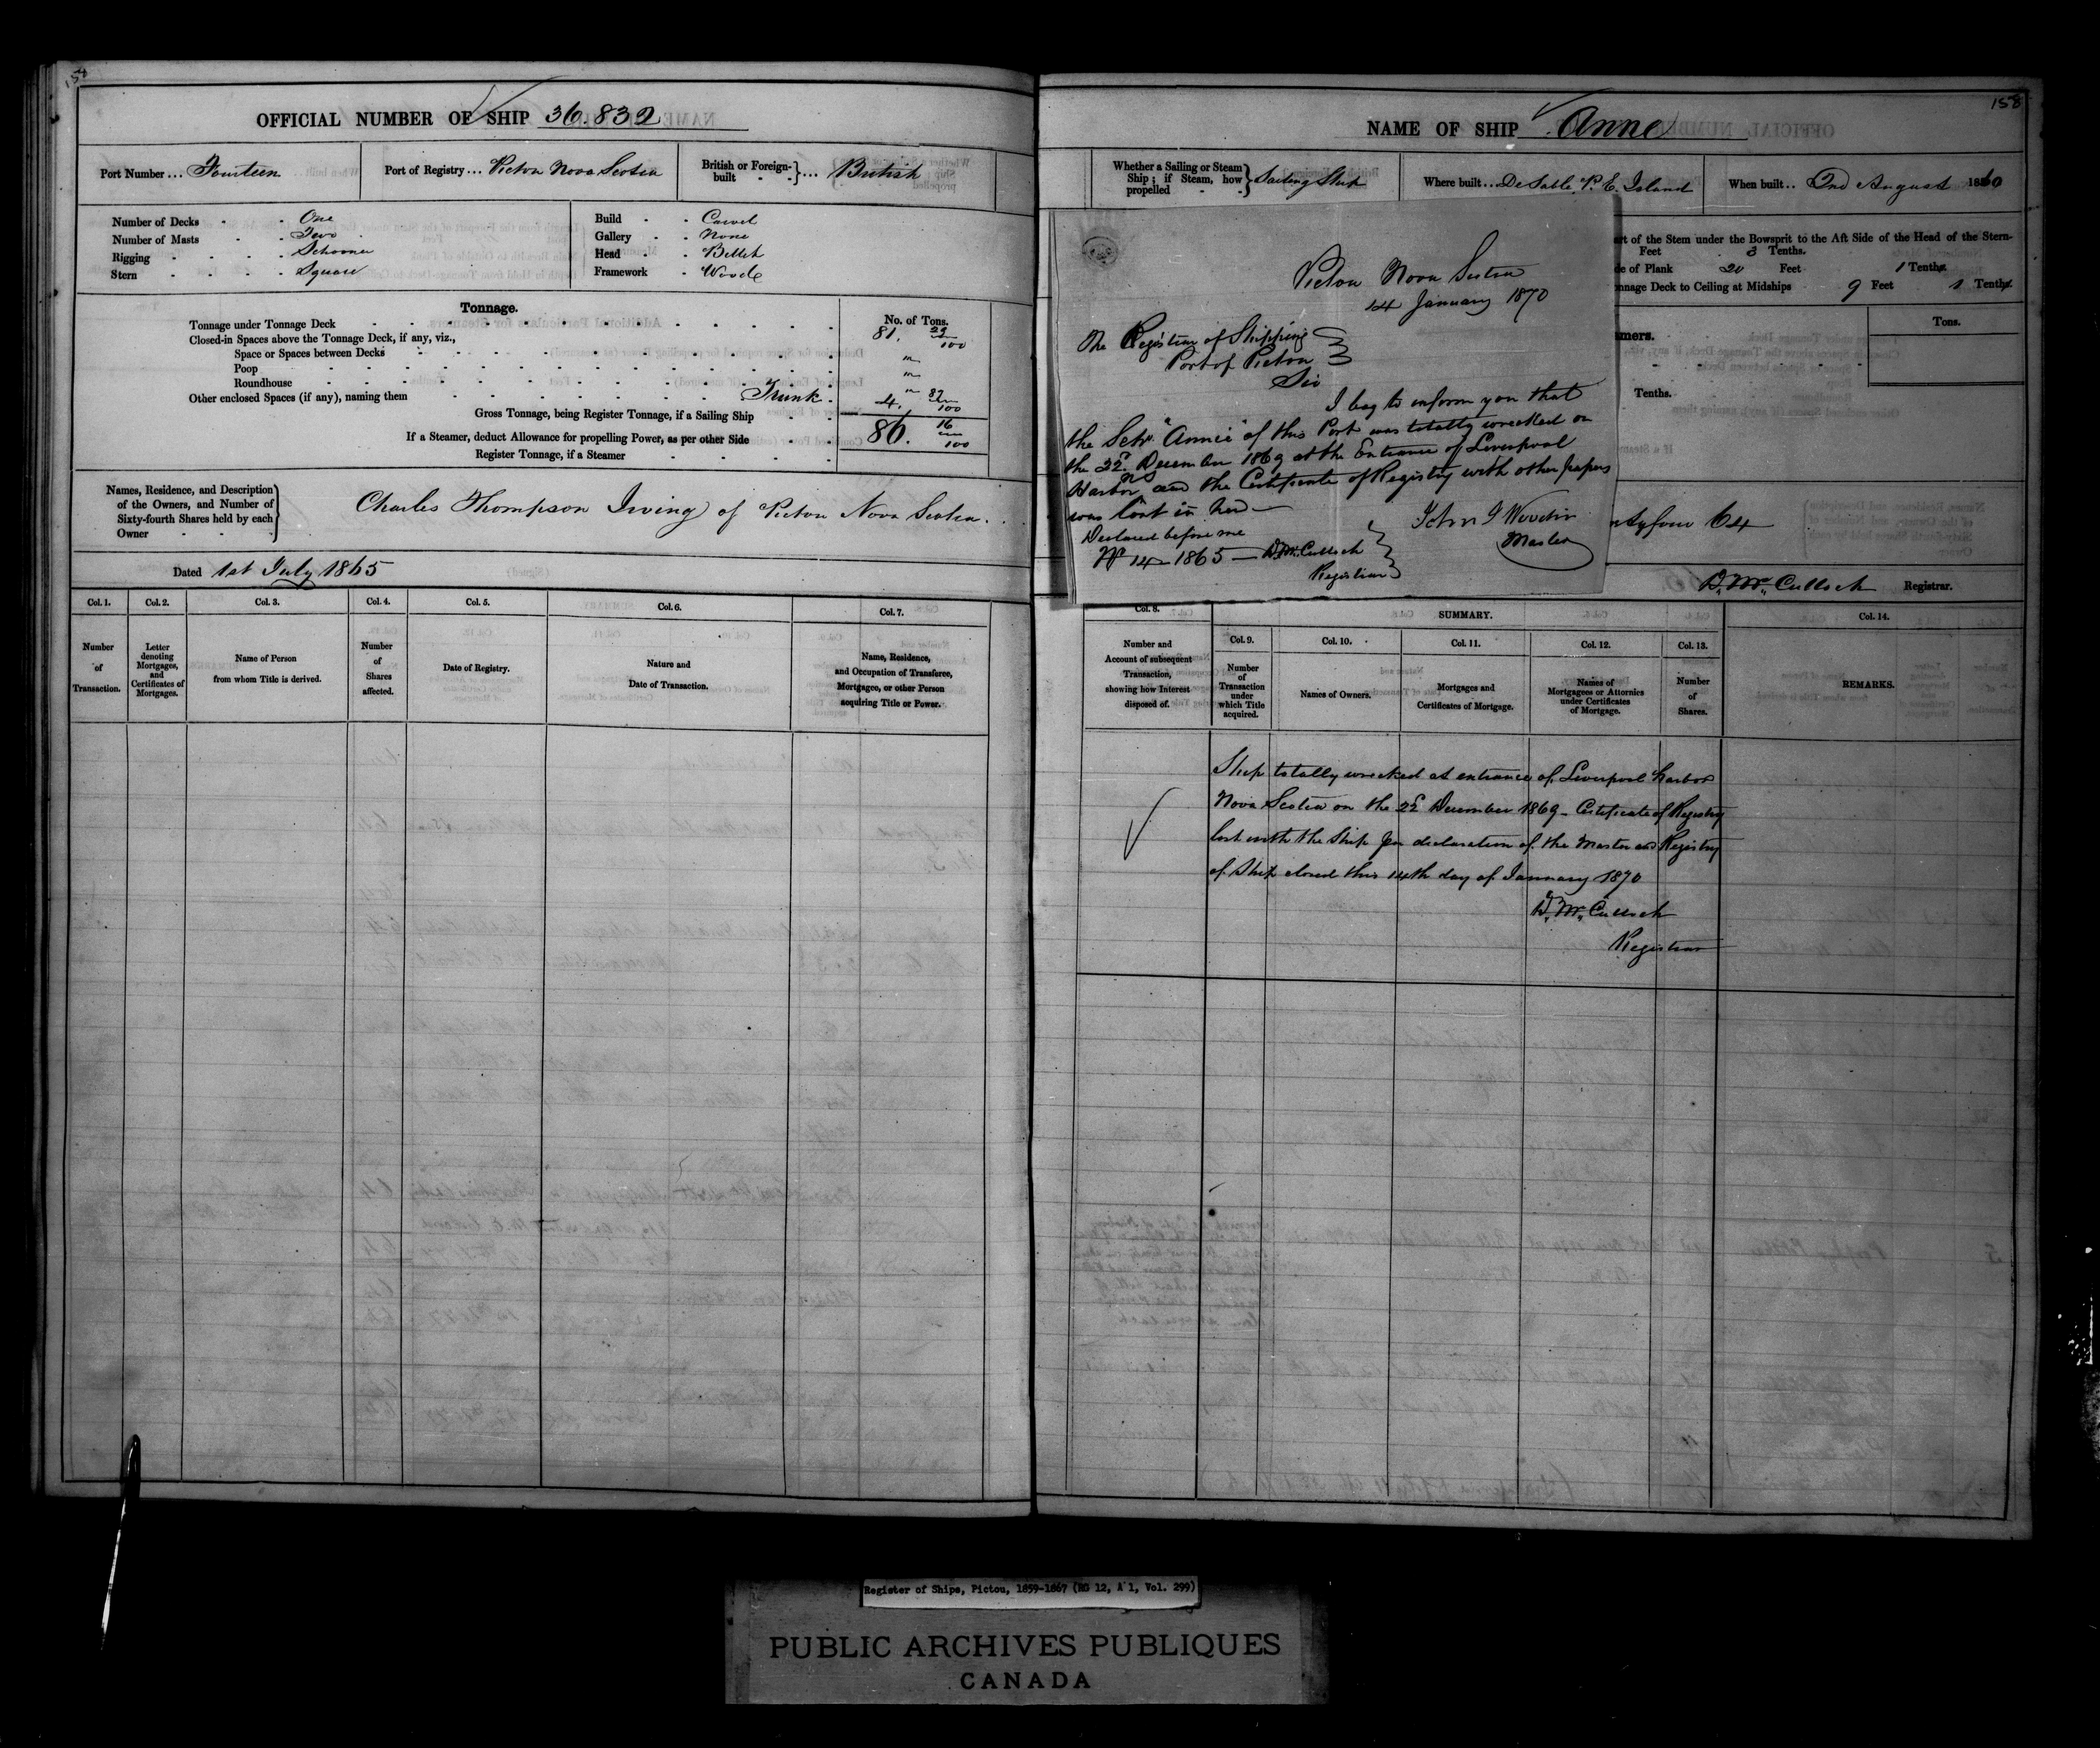 158
OFFICIAL NUMBER OF SHIP 36.832
Port Number ... Fourteen
Port of Registry ... Pictou Nova Scotia
British or Foreign-built - - } ... British
Number of Decks - - One
Number of Masts - - Two
Rigging - - - - Schooner
Stern - - - - Square
Build - - Carvel
Gallery - - None
Head - - Billet
Framework - Wood
Tonnage.
No. of Tons.
Tonnage under Tonnage Deck 81. 29/100
Closed-in Spaces above the Tonnage Deck, if any, viz.,
Space or Spaces between Decks "
Poop "
Roundhouse "
Other enclosed Spaces (if any), naming them Trunk 4. 87/100
Gross Tonnage, being Register Tonnage, if a Sailing Ship 86. 16/100
If a Steamer, deduct Allowance for propelling Power, as per other Side
Register Tonnage, if a Steamer
Names, Residence, and Description
of the Owners, and Number of
Sixty-fourth Shares held by each
Owner
Charles Thompson Irving of Pictou Nova Scotia.
Dated 1st July 1865
Col. 1. Col. 2. Col. 3. Col. 4. Col. 5. Col. 6. Col. 7.
Number of Transaction.
Letter denoting Mortgages, and Certificates of Mortgages.
Name of Person from whom Title is derived.
Number of Shares affected.
Date of Registry.
Nature and Date of Transaction.
Name, Residence, and Occupation of Transferee, Mortgagee, or other Person acquiring Title or Power.
158
NAME OF SHIP Anne
Whether a Sailing or Steam Ship; if Steam, how propelled } Sailing Ship
Where built ... DeSable, P. E. Island
When built .. 2nd August 1860
Pictou Nova Scotia
14 January 1870
The Registrar of Shipping
Port of Pictou
Sir
I beg to inform you that
the Schr. "Annie" of this Port was totally wrecked on
the 22d. December 1869 at the Entrance of Liverpool
Harbor NS and the Certificate of Registry with other papers
was lost in her
John J
Master
Declared before me
No 14 - 1865 - D. McCulloch
Registrar
rt of the Stem under the Bowsprit to the Aft Side of the Head of the Stern-
Feet 3 Tenths.
e of Plank 20 Feet 1 Tenths.
nnage Deck to Ceiling at Midships 9 Feet 1 Tenths.
mers.
Tons.
Tenths.
ntyfour 64
D. McCulloch Registrar.
Col. 8. SUMMARY. Col. 14.
Col. 9. Col. 10. Col. 11. Col. 12. Col. 13.
Number and Account of subsequent Transaction, showing how Interest disposed of.
Number of Transaction under which Title acquired.
Names of Owners.
Mortgages and Certificates of Mortgage.
Names of Mortgagees or Attornies under Certificates of Mortgage.
Number of Shares.
REMARKS.
Ship totally wrecked at entrance of Liverpool harbor
Nova Scotia on the 22d December 1869 - Certificate of Registry
lost with the Ship per declaration of the Master and Registry
of Ship closed this 14th day of January 1870
D. McCulloch
Registrar
Register of Ships, Pictou, 1859-1867 (RG 12, A 1, Vol. 299)
PUBLIC ARCHIVES PUBLIQUES
CANADA